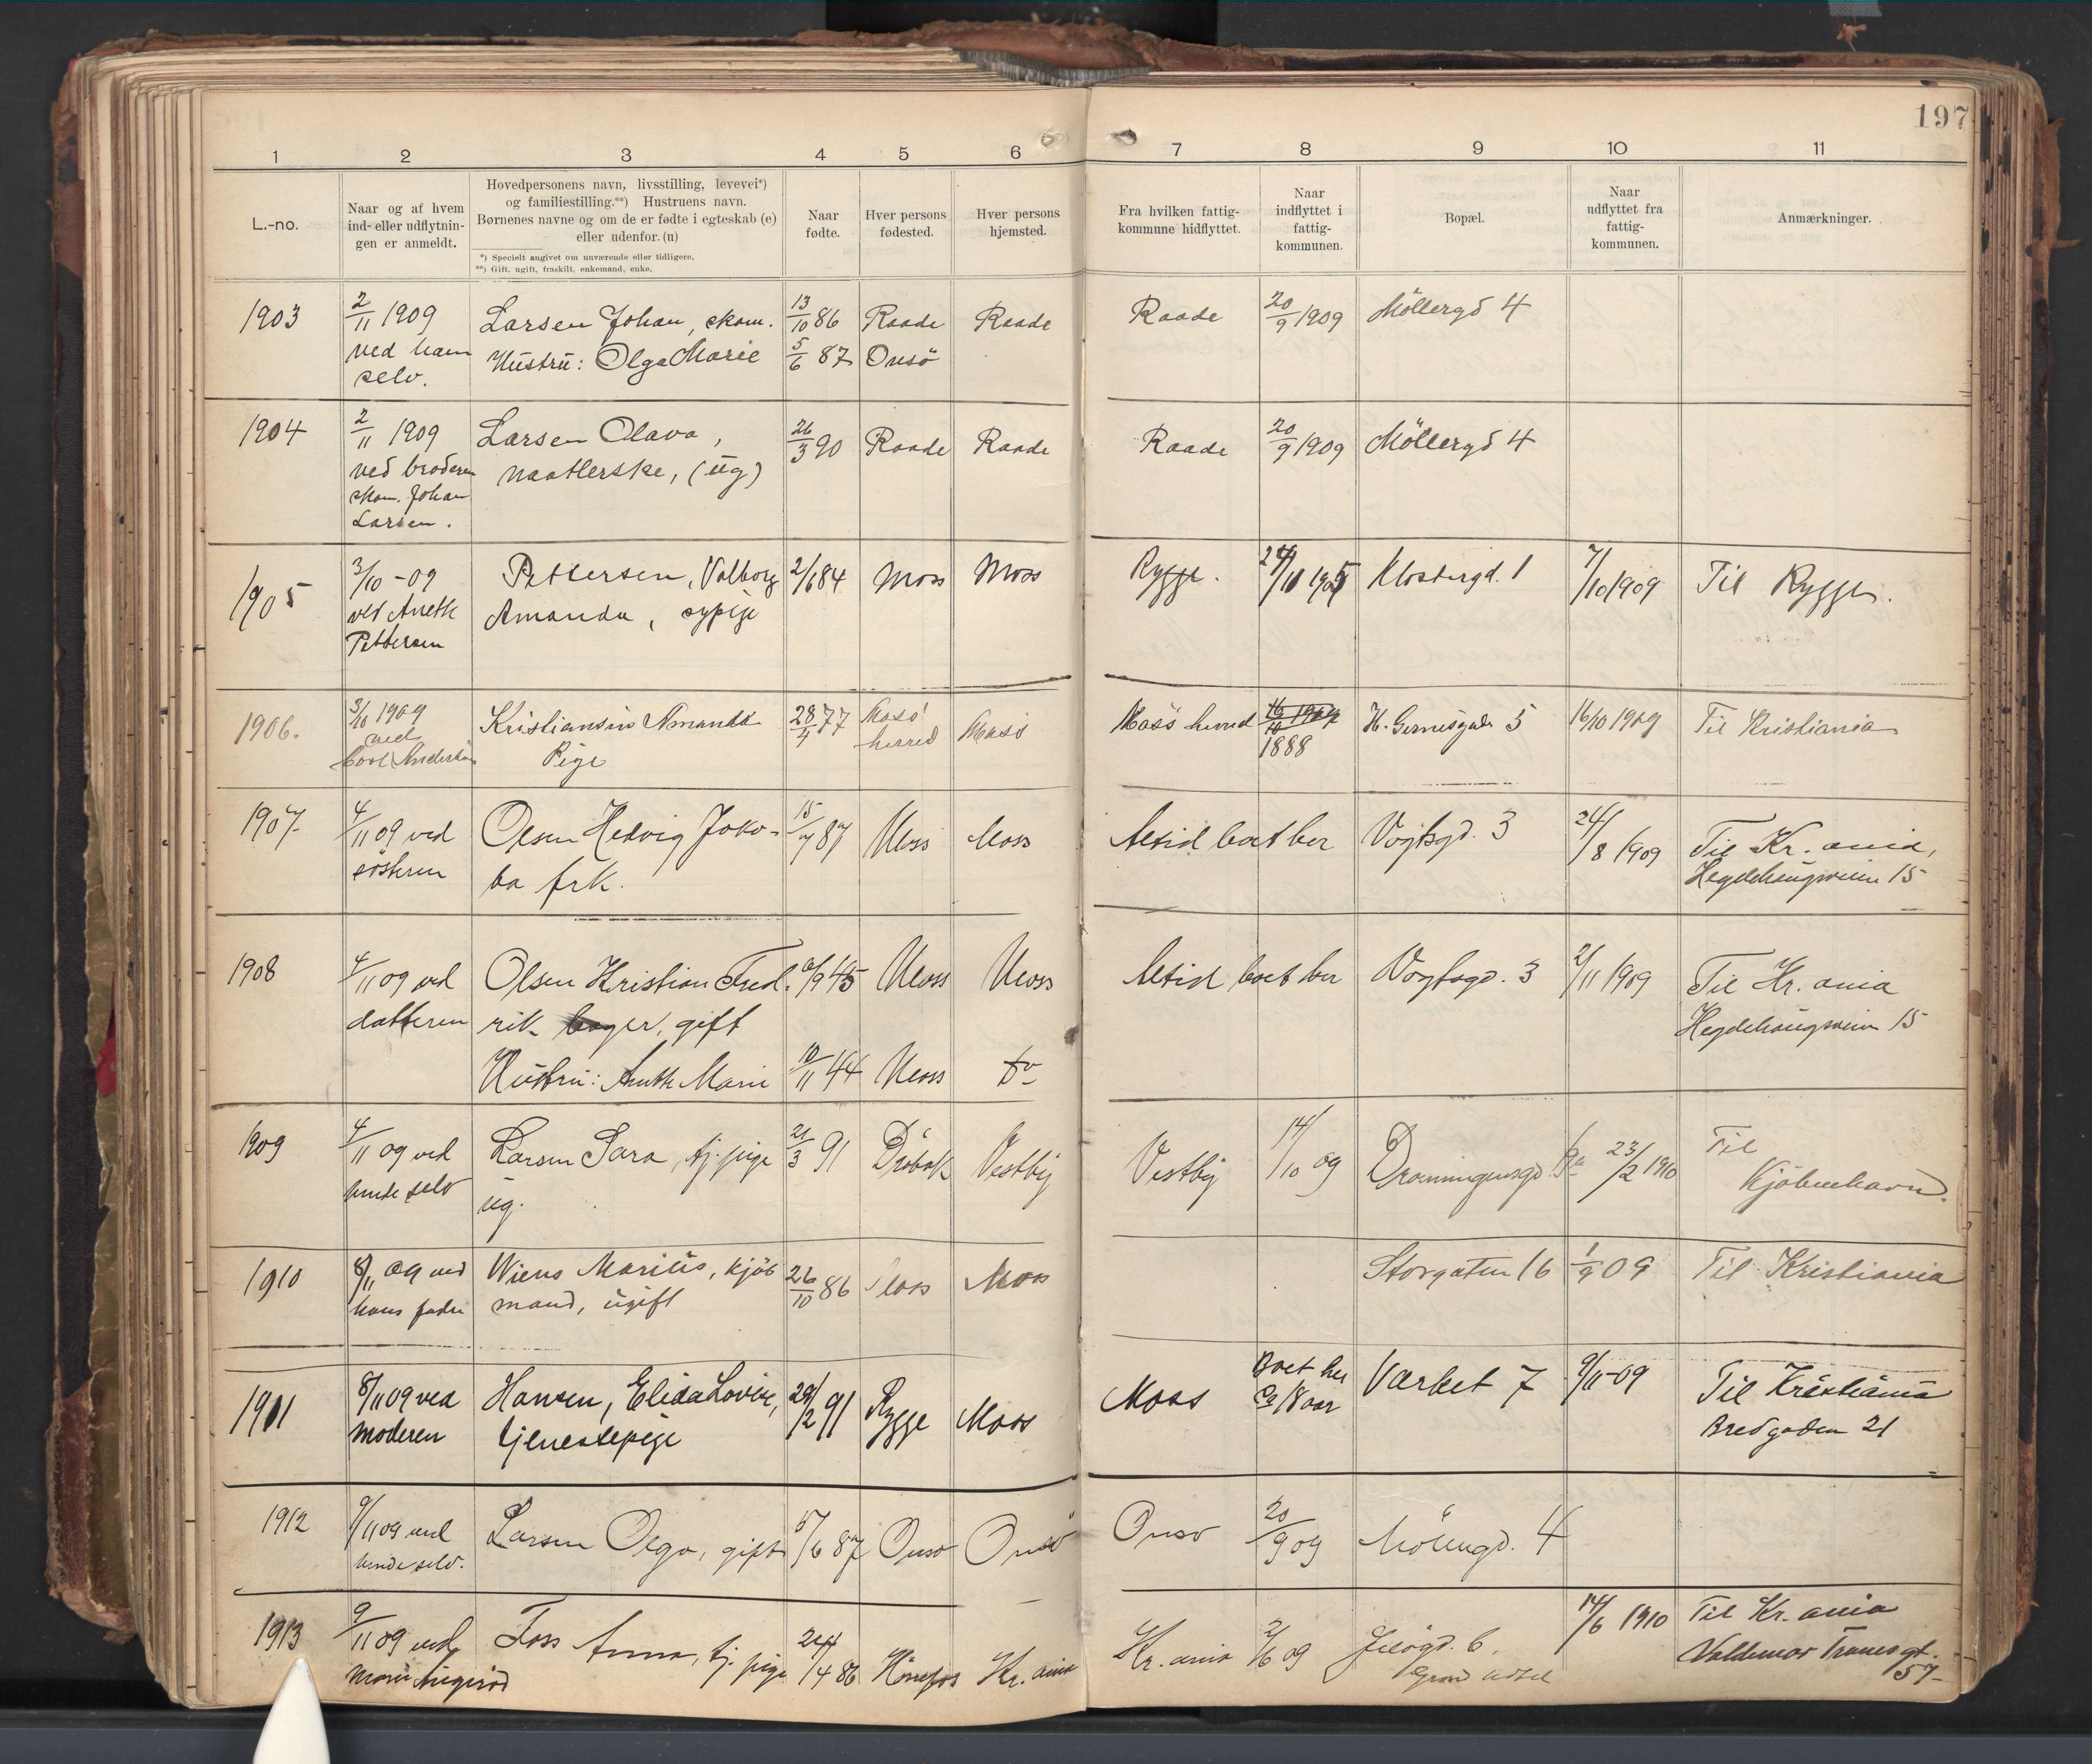 197
1 2 3 4 5 6 7 8 9 10 11
L.-no.
Naar og af hvem
ind- eller udflytnin-
gen er anmeldt.
Hovedpersonens navn, livsstilling, levevei*)
og familiestilling.**) Hustruens navn.
Børnenes navne og om de er fødte i egteskab (e)
eller udenfor. (u)
*) Specielt angivet om nuværende eller tidligere.
**) Gift, ugift, fraskilt, enkemand, enke.
Naar
fødte.
Hver persons
fødested.
Hver persons
hjemsted.
Fra hvilken fattig-
kommune hidflyttet.
Naar
indflyttet i
fattig-
kommunen.
Bopæl.
Naar
udflyttet fra
fattig-
kommunen.
Anmærkninger.
1903 2/11 1909 Larsen Johan, skom. 13/10 86 Raade Raade Raade 20/9 1909 Möllergd 4
ved ham Hustru: Olga Marie 5/6 87 Onsö
selv.
1904 2/11 1909 Larsen Olava, 26/3 90 Raade Raade Raade 20/9 1909 Möllergd 4
ved broderen naatlerske, (ug)
skom. Johan
Larsen.
1905 3/10 -09 Pettersen, Valborg 2/1 84 Moss Moss Rygge. Klostergd. 1 7/10 1909 Til Rygge.
ved Aneth Amanda, sypige
Pettersen
1906. 3/10 1909 Kristiansen Amanda 28/4 77 Moss Moss Moss herred 5 16/10 1909 Til Kristiania
ved Pige herred 1888
Andersen
1907. 4/11 09 ved Olsen Hedvig Jako- 15/7 87 Moss Moss Altid boet her Vogtsgd. 3 24/8 1909 Til Kr.ania,
søsteren ba frk. Hegdehaugsveien 15
1908 4/11 09 ved Olsen Kristian Fred- 6/9 45 Moss Moss Altid boet her Vogtsgd. 3 2/11 1909 Til Kr.ania
datteren rik bager, gift Hegdehaugsveien 15
Hustru: Aneth Marie 10/11 44 Moss do
1909 4/11 09 ved Larsen Sara, tj.pige 21/3 91 Dröbak Vestby Vestby 14/10 09 Dronningensgd. 23/2 1910 Til
hende selv ug. Kjöbenhavn.
1910 8/11 09 ved Wiens Marius, kjöb 26/10 86 Moss Moss Storgaten 16 1/9 09 Til Kristiania
hans fader mand, ugift
1911 8/11 09 ved Hansen, Elida Lovise, 29/2 91 Rygge Moss Moss Boet her Værket 7 9/11-09 Til Kristiania
moderen tjenestepige ca 18 aar Bredgaden 21
1912 9/11 09 ved Larsen Olga, gift 5/6 87 Onsö Onsö Onsö 20/9 09 Möllergd. 4
hende selv.
1913 9/11 09 ved Foss Anna, tj. pige 24/4 86 Hönefos Kr.ania Kr.ania 2/6 09 Jelögd. 6. 14/6 1910 Til Kr.ania
Grand Valdemar Tranesgt.
57